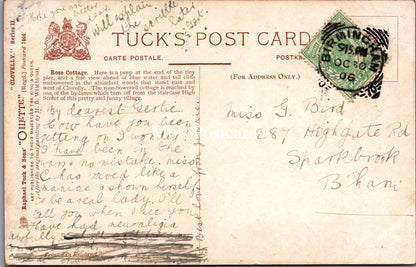 Hope you are better
dear.
will explain
the scribble
later
TUCK'S POST CARD
CARTE POSTALE.
POSTKARTE.
(FOR ADDRESS ONLY.)
BIRMINGHAM
915 PM
OC 30
06
"CLOVELLY" Series II.
(Regd.) Postcard 7364.
Raphael Tuck & Sons' "OILETTE"
ART PUBLISHERS TO THEIR MAJESTIES THE KING & QUEEN.
After the original painting by H. B. WIMBUSH.
Rose Cottage. Here is a peep at the end of the tiny
pier, and a fine view ahead of blue water and tall cliffs
embowered in the abundant woods that stand east and
west of Clovelly. The rose-bowered cottage is reached by
one of the by-lanes which turn off from the staircase High
Street of this pretty and funny village.
My dearest Gertie
How have you been
getting on I wonder
I have been in the
wars no mistake. miss
C has raved like a
maniac & shown herself
to be a real lady. I'll
tell you when I see you
Have had neuralgia
awfully
Best love from
Miss G. Bird
287 Highgate Rd
Sparkbrook
B'ham